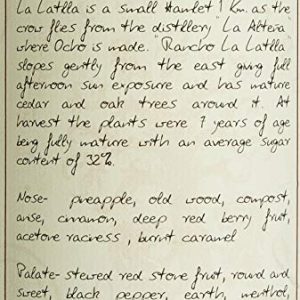 La Latlla is a small Hamlet 1 Km. as the
crow flies from the distillery "La Alteña"
where Ocho is made. Rancho La Latlla
slopes gently from the east giving full
afternoon sun exposure and has mature
cedar and oak trees around it. At
harvest the plants were 7 years of age
being fully mature with an average sugar
content of 32%.
Nose- pineapple, old wood, compost,
anise, cinnamon, deep red berry fruit,
acetone raciness, burnt caramel
Palate- stewed red stone fruit, round and
sweet, black pepper, earth, menthol,